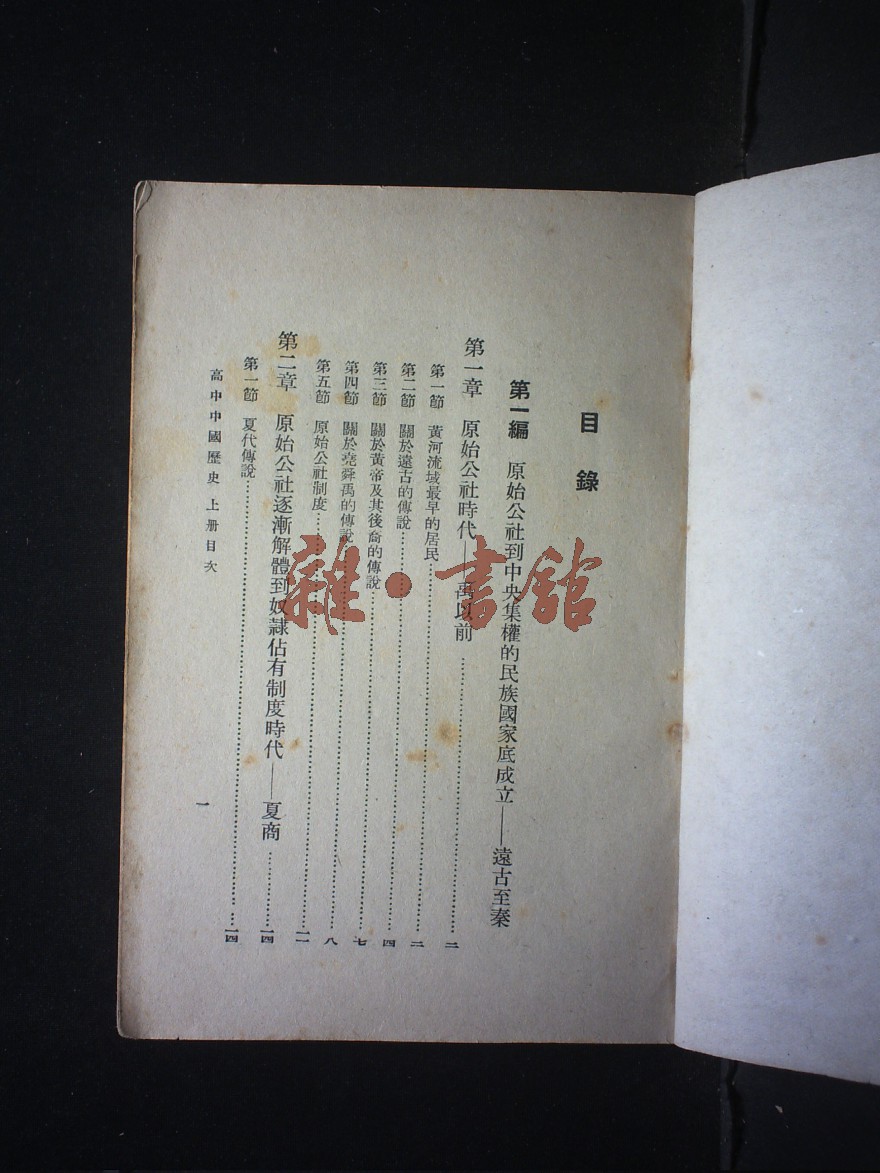 目錄
第一編 原始公社到中央集權的民族國家底成立——遠古至秦
第一章 原始公社時代——禹以前……二
第一節 黃河流域最早的居民……二
第二節 關於遠古的傳說……四
第三節 關於黃帝及其後裔的傳說……七
第四節 關於堯舜禹的傳說……八
第五節 原始公社制度……一一
第二章 原始公社逐漸解體到奴隸佔有制度時代——夏商……一四
第一節 夏代傳說……一四
高中中國歷史 上册目次
一
雜·書館